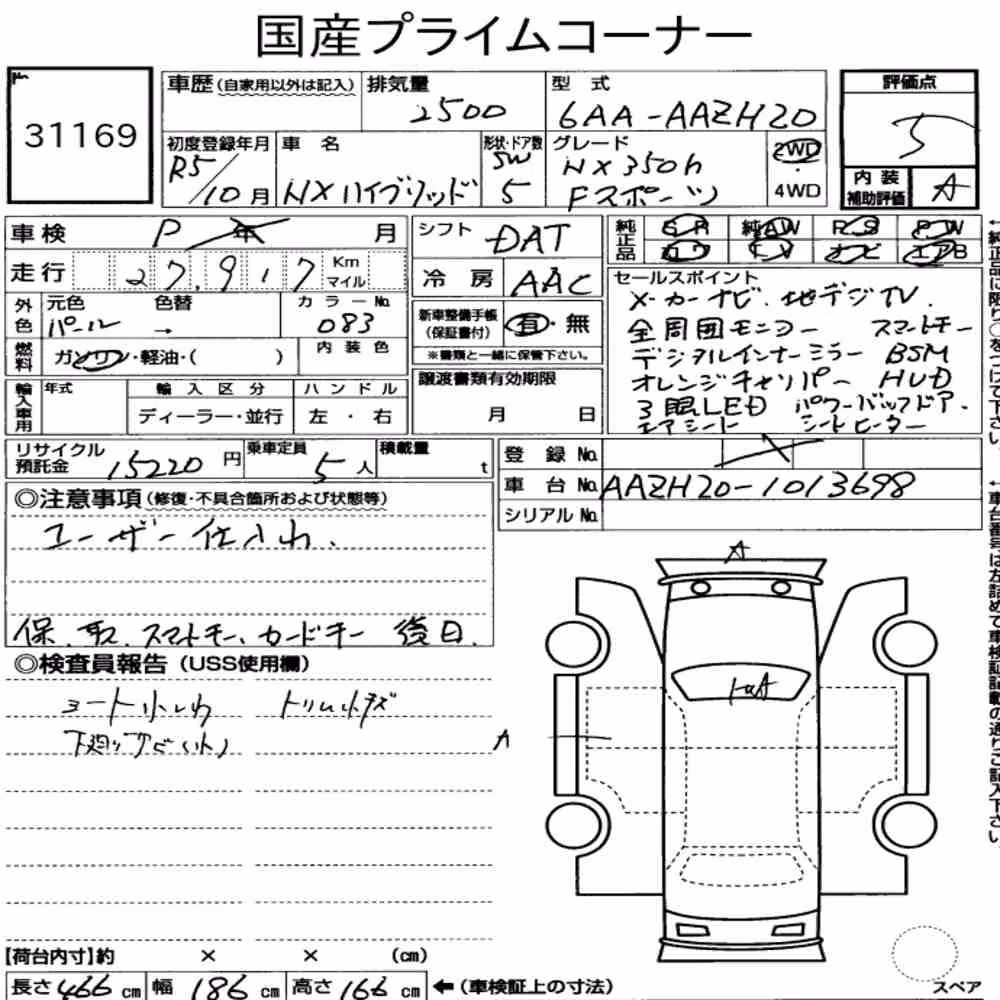 国産プライムコーナー
31169
車歴(自家用以外は記入) 排気量 2500 型 式 6AA-AAZH20 評価点 5
初度登録年月 R5/10月 車 名 NXハイブリッド 形状・ドア数 SW 5 グレード NX350h Fスポーツ 2WD 4WD 内装補助評価 A
車検 P 年 月 シフト DAT 純正品 SR 純AW PS PW
カワ TV ナビ エアB
走行 27,917 Km マイル 冷 房 AAC
外色 元色 パール 色替 → カラーNo. 083 新車整備手帳(保証書付) 有・無
※書類と一緒に保管下さい。
燃料 ガソリン・軽油・( ) 内装色
輸入車用 年式 輸入区分 ディーラー・並行 ハンドル 左・右 譲渡書類有効期限 月 日
セールスポイント
メーカーナビ.地デジTV.
全周囲モニター スマートキー
デジタルインナーミラー BSM
オレンジキャリパー HUD
3眼LED パワーバックドア.
エアシート シートヒーター
リサイクル預託金 15220 円 乗車定員 5 人 積載量 t
登 録 No.
車 台 No. AAZH20-1013698
シリアル No.
◎注意事項(修復・不具合箇所および状態等)
ユーザー仕入れ.
保.取.スマートキー、カードキー 後日.
◎検査員報告(USS使用欄)
シート小しわ トリム小キズ
A
A
【荷台内寸】約 × × (cm)
長さ 466 cm 幅 186 cm 高さ 166 cm ←(車検証上の寸法)
スペア
←純正品に限り○をつけて下さい。
←車台番号は左詰めで車検証記載の通りご記入下さい。